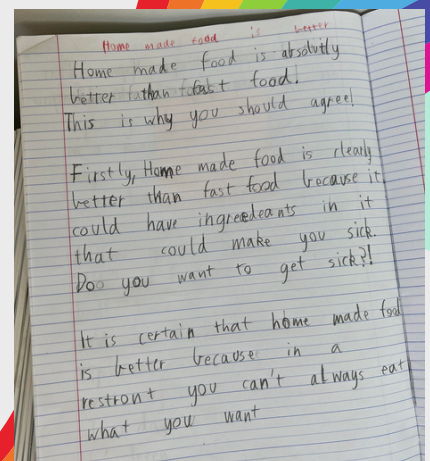 Home made food is better
Home made food is absolutly
better than fast food.
This is why you should agree!
Firstly, Home made food is clearly
better than fast food because it
could have ingreedeants in it
that could make you sick.
Do you want to get sick?!
It is certain that home made food
is better because in a
restront you can't always eat
what you want